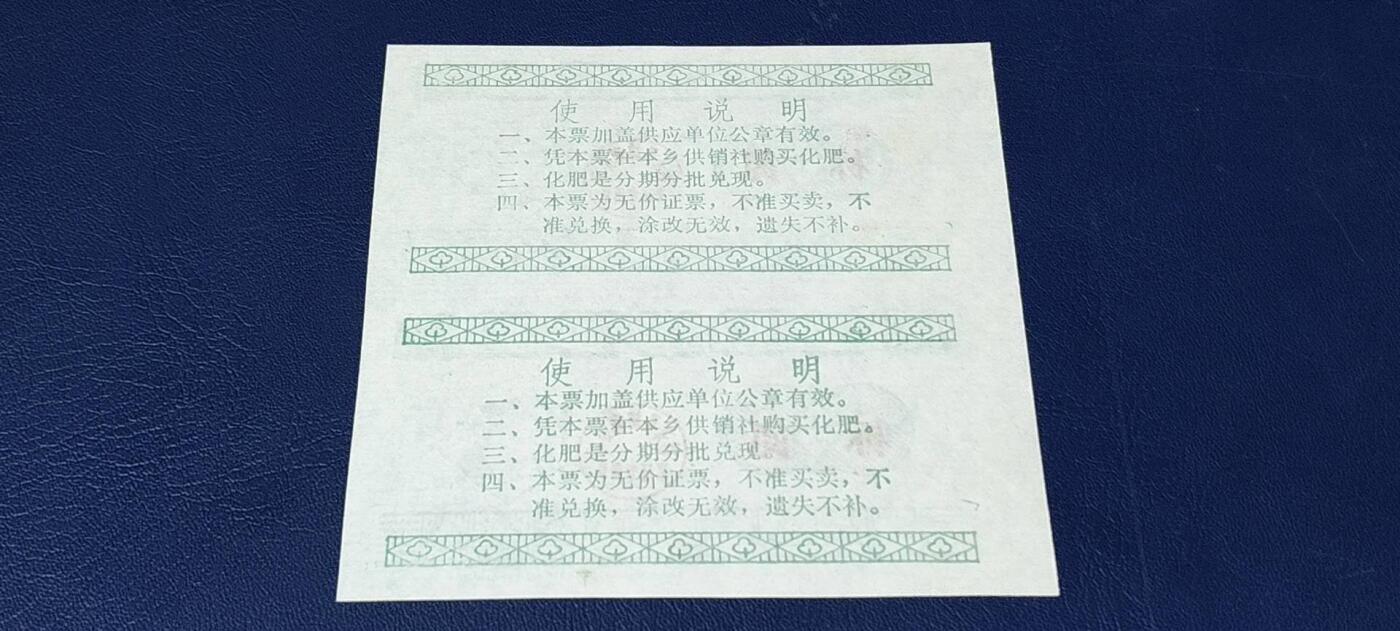 使 用 说 明
一、本票加盖供应单位公章有效。
二、凭本票在本乡供销社购买化肥。
三、化肥是分期分批兑现。
四、本票为无价证票，不准买卖，不
准兑换，涂改无效，遗失不补。
使 用 说 明
一、本票加盖供应单位公章有效。
二、凭本票在本乡供销社购买化肥。
三、化肥是分期分批兑现
四、本票为无价证票，不准买卖，不
准兑换，涂改无效，遗失不补。